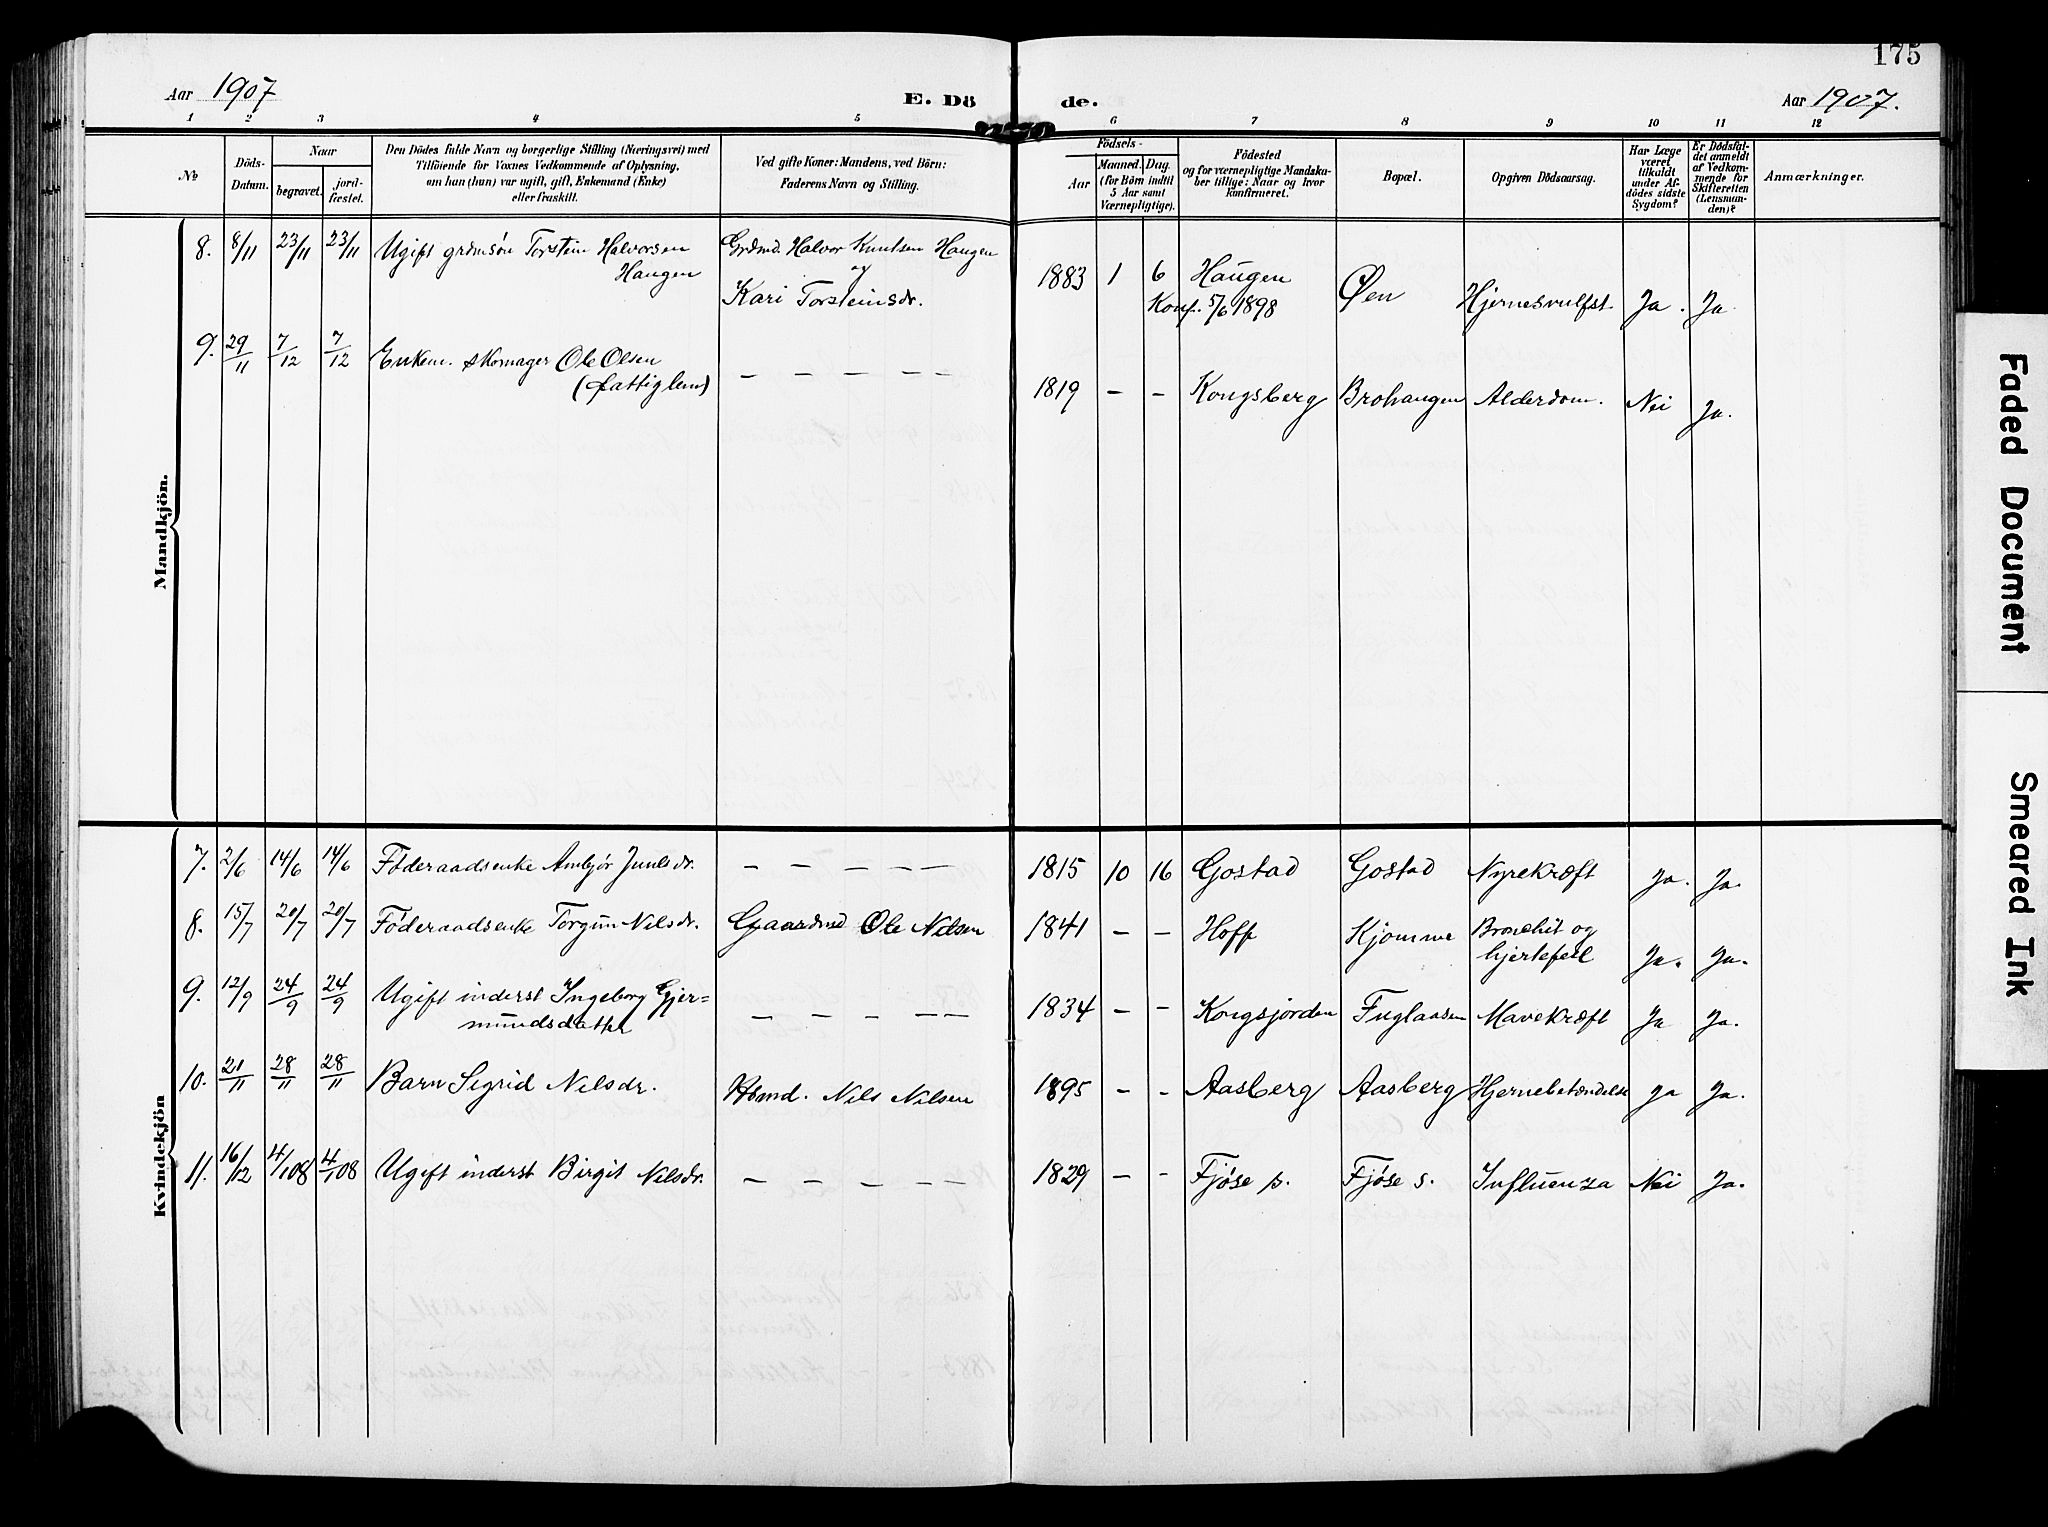 175
Aar 1907
E. Dö de.
Aar 1907.
1 2 3 4 5 6 7 8 9 10 11 12
№
Döds-
Datum.
Naar
begravet.
jord-
fæstet.
Den Dödes fulde Navn og borgerlige Stilling (Næringsvei) med
Tilföiende for Voxnes Vedkommende af Oplysning,
om han (hun) var ugift, gift, Enkemand (Enke)
eller fraskilt.
Ved gifte Koner: Mandens, ved Börn:
Faderens Navn og Stilling.
Födsels-
Aar
Maaned. Dag.
(for Börn indtil
5 Aar samt
Værnepligtige).
Födested
og for værnepligtige Mandska-
ber tillige: Naar og hvor
konfirmeret.
Bopæl.
Opgiven Dödsaarsag.
Har Læge
været
tilkaldt
under Af-
dödes sidste
Sygdom?
Er Dödsfal-
det anmeldt
af Vedkom-
mende for
Skifteretten
(Lensman-
den)?
Anmærkninger.
Mandkjön.
8. 8/11 23/11 23/11 Ugift grdmsøn Torstein Halvorsen
Haugen
Grdmd. Halvor Knutsen Haugen
og
Kari Torsteinsdr.
1883 1 6 Haugen
Konf. 5/6 1898
Øen Hjernesvulst Ja. Ja.
9. 29/11 7/12 7/12 Enkem. skomager Ole Olsen
(fattiglem)
— — — — —
1819 - - Kongsberg Brohaugen Alderdom. Nei Ja.
Kvindekjön
7. 2/6 14/6 14/6 Føderaadsenke Ambjør Juulsdr. — — — — — 1815 10 16 Gostad Gostad Nyrekræft Ja. Ja.
8. 15/7 20/7 20/7 Føderaadsenke Torgun Nilsdr. Gaardmd Ole Nilsen 1841 - - Hoff Kjomme Bronchit og
hjertefeil Ja. Ja.
9. 12/9 24/9 24/9 Ugift inderst Ingeborg Gjer=
mundsdatter — — — — — 1834 - - Kongsjorden Fuglaasen Mavekræft Ja Ja.
10. 21/11 28/11 28/11 Barn Sigrid Nilsdr. Hsmd. Nils Nilsen 1895 - - Aasberg Aasberg Hjernebetændelse Ja Ja.
11. 16/12 4/1 08 4/1 08 Ugift inderst Birgit Nilsdr. — — — — — 1829 - - Fjøse s. Fjøse s. Influenza Nei Ja.
Faded Document
Smeared Ink